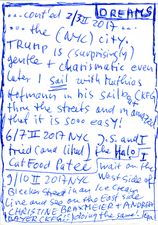 DREAMS
... cont'ed 2/3 II 2017 ...
... the (NYC) city
TRUMP is (surprisingly)
gentle + charismatic even
later I sail with Mathias
Hofmann in his
thru the streets and m amazed
that it is sooo easy!
6/7 II 2017 NYC
J.S. and I
tried (and liked)
the Halo
Cat Food Patee
wait on the
9/10 II 2017 NYC
West side of
Bleeker Street in an Ice Cream
line and see on the East side
CHRISTINE
BAYER doing the same!